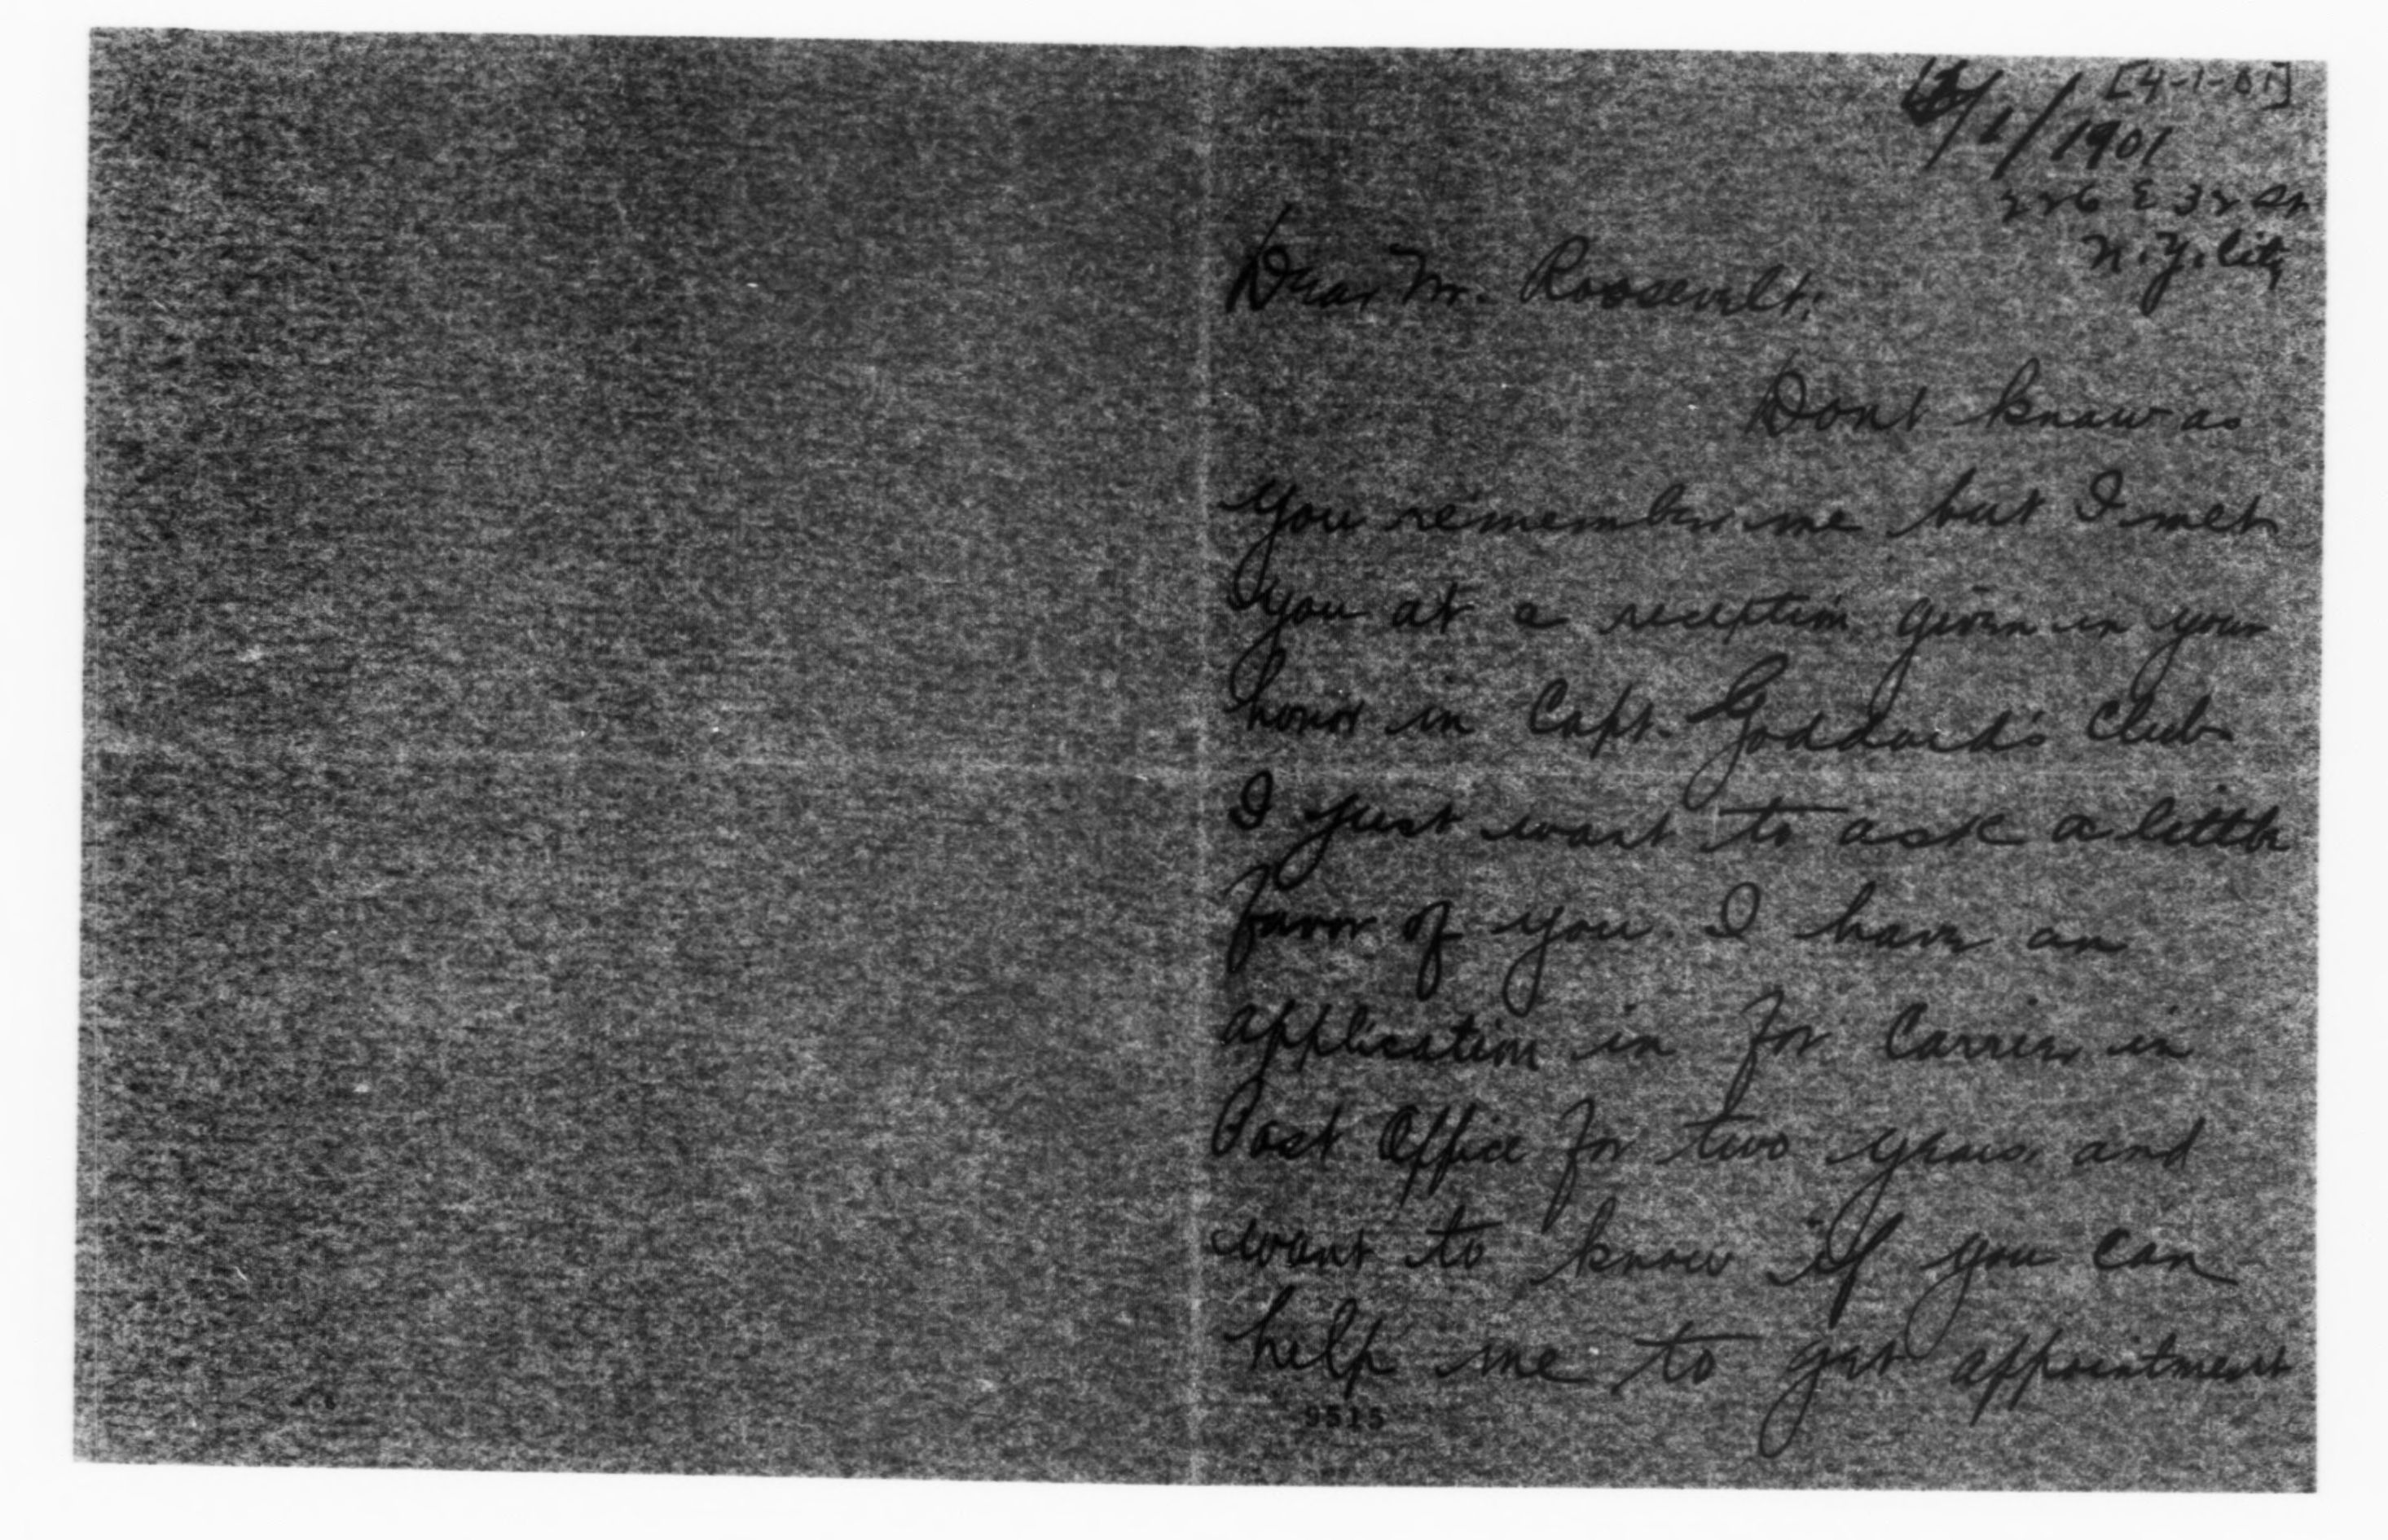 [4-1-01]
4/1/1901
226 E 32 St
N.Y. City
Dear Mr. Roosevelt:
Dont know as
you remember me but I met
you at a reception given in your
honor in Capt. Goddard's Club
I just want to ask a little
favor of you. I have an
application in for Carrier in
Post Office for two years and
want to know if you can
help me to get appointment
9515